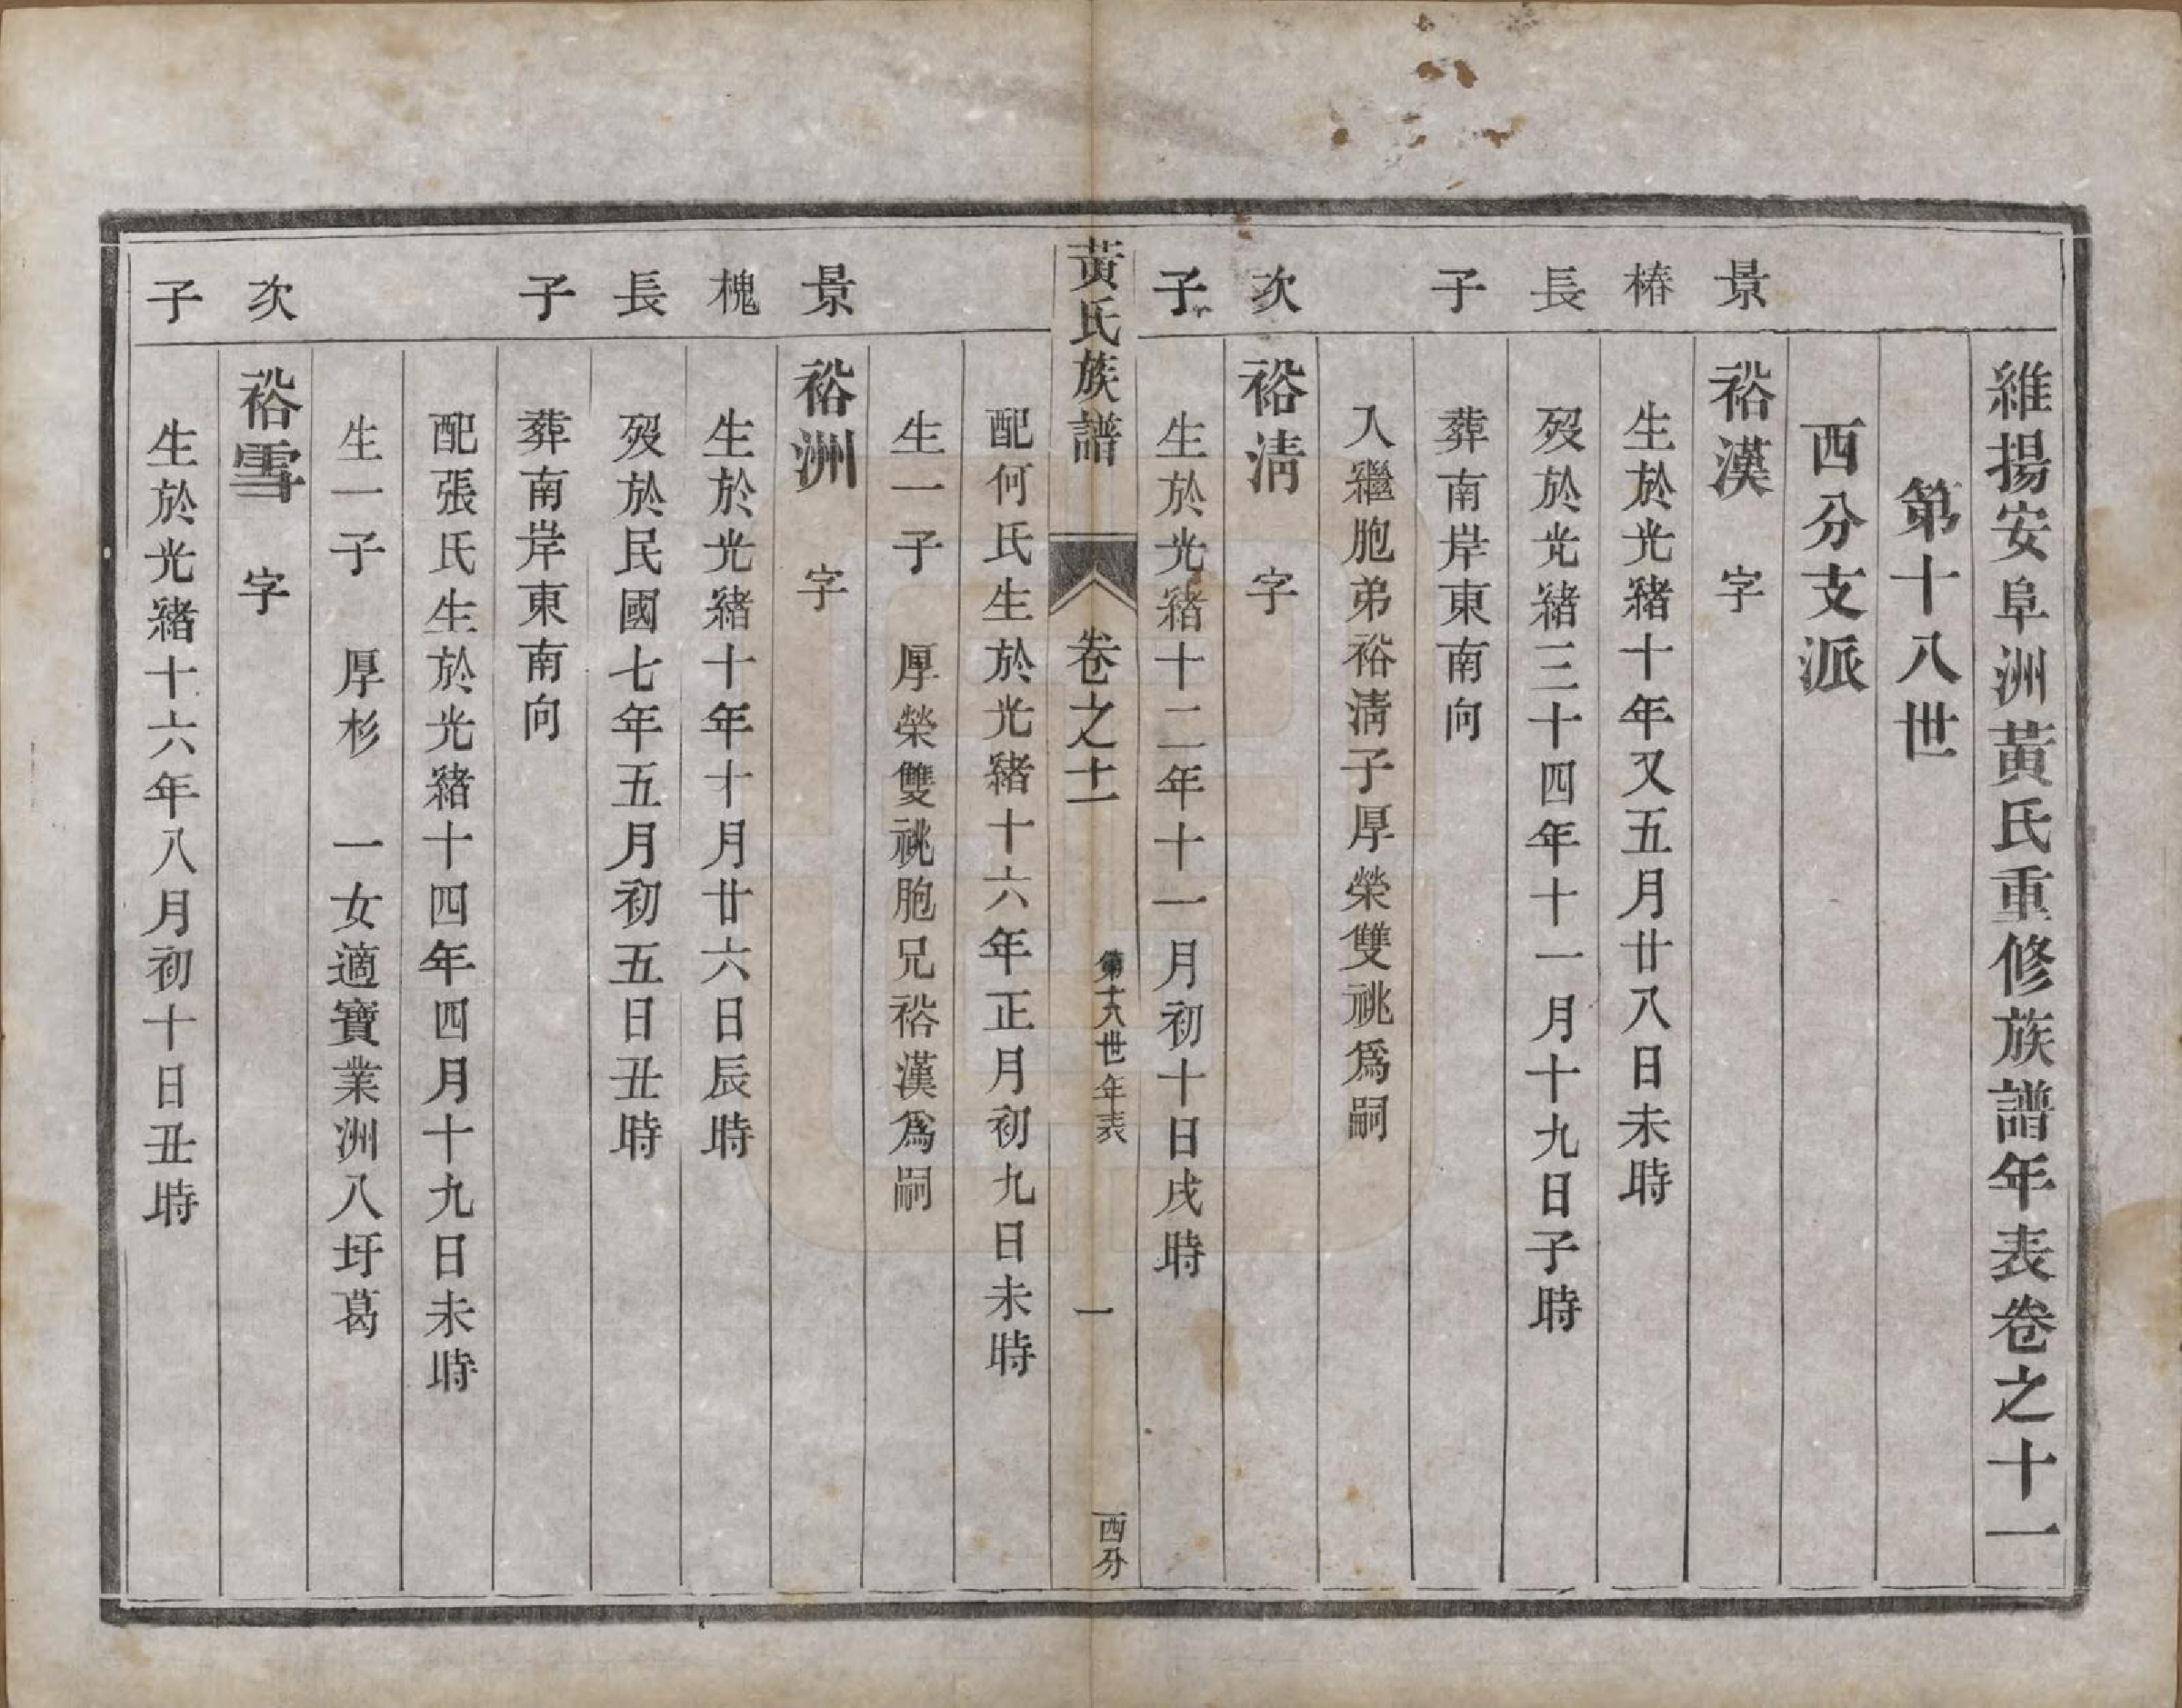 維揚安阜洲黃氏重修族譜年表卷之十一
第十八世
西分支派
景椿長子
裕漢　字
生於光緒十年又五月廿八日未時
歿於光緒三十四年十一月十九日子時
葬南岸東南向
入繼胞弟裕淸子厚榮雙祧爲嗣
次子
裕淸　字
生於光緒十二年十一月初十日戌時
黃氏族譜
卷之十一
第十八世年表
一
西分
配何氏生於光緒十六年正月初九日未時
生一子　厚榮雙祧胞兄裕漢爲嗣
景槐長子
裕洲　字
生於光緒十年十月廿六日辰時
歿於民國七年五月初五日丑時
葬南岸東南向
配張氏生於光緒十四年四月十九日未時
生一子　厚杉　一女適寶業洲八圩葛
次子
裕雪　字
生於光緒十六年八月初十日丑時